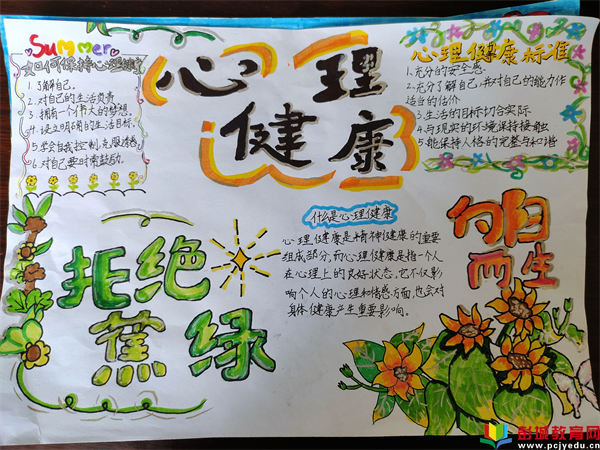 Summer
如何保持心理健康
1.了解自己。
2.对自己的生活负责
3.拥有一个伟大的梦想。
4.设立明确的生活目标。
5.学会自我控制,克服诱惑。
6.对自己要时常鼓励。
心理
健康
心理健康标准
1.充分的安全感。
2.充分了解自己,并对自己的能力作
适当的估价
3.生活的目标切合实际
4.与现实的环境保持接触
5.能保持人格的完整与和谐
拒绝
蕉绿
什么是心理健康
心理健康是精神健康的重要
组成部分,而心理健康是指一个人
在心理上的良好状态。它不仅影
响个人的心理和情感方面,也会对
身体健康产生重要影响。
向阳
而生
彭城教育网
www.pcjyedu.cn